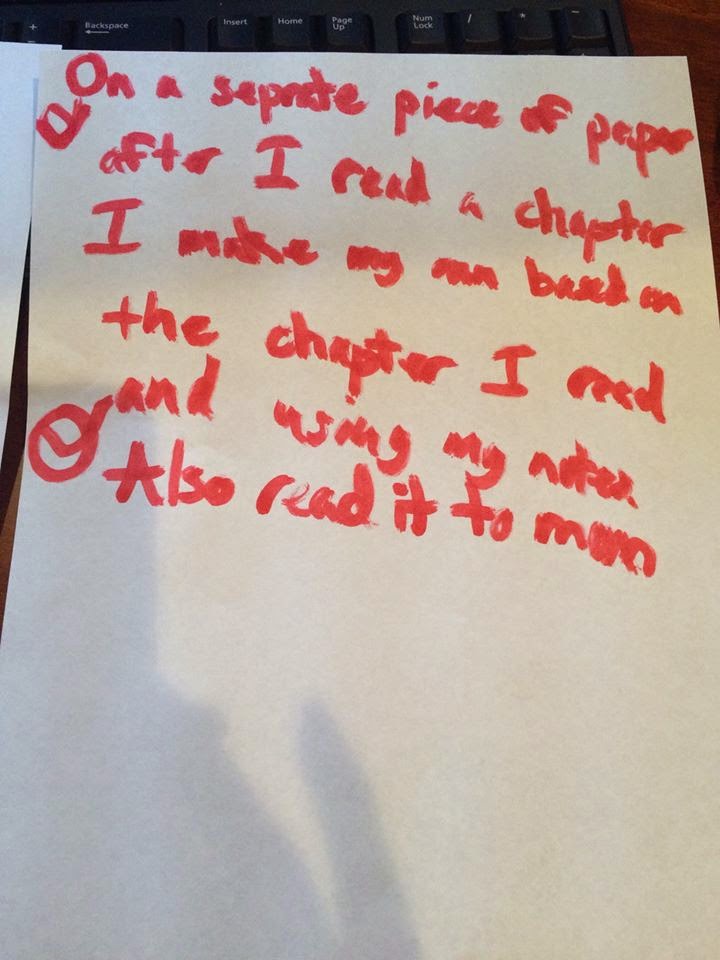 +
Backspace
Insert
Home
Page Up
Num Lock
/
*
-
On a seprate piece of paper
after I read a chapter
I make my own based on
the chapter I read
and using my notes.
Also read it to mom